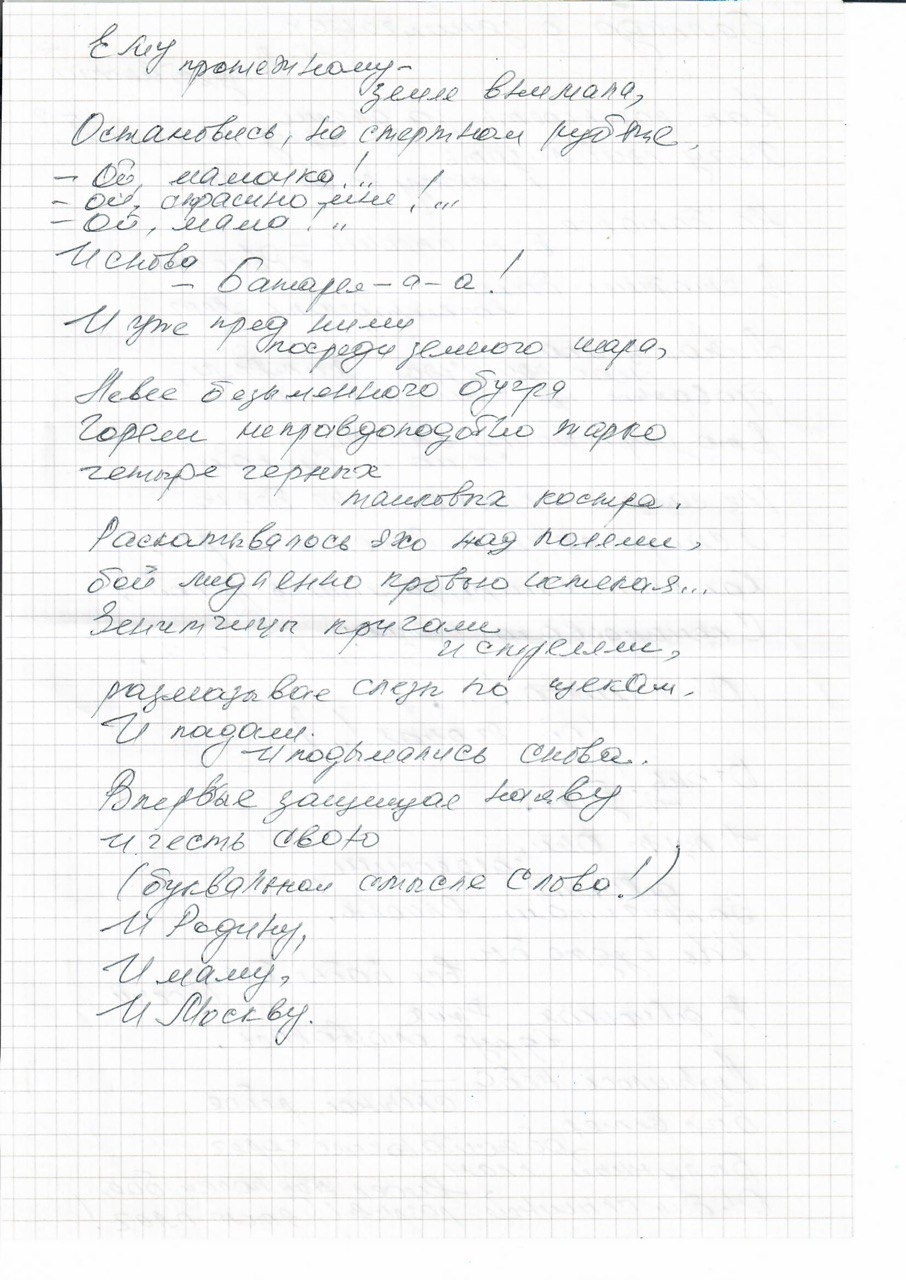 Ему
протяжному-
земля внимала,
Остановясь, на смертном рубеже.
- Ой, мамочка!..
- ой, страшно мне!...
- Ой, мама!..
И снова
- Батарея-а-а!
И уже пред ними
посреди земного шара,
Левее безыменного бугра
Горели неправдоподобно жарко
четыре черных
танковых костра.
Раскатывалось эхо над полями,
бой медленно кровью истекал...
Зенитчицы кричали
и стреляли,
размазывае слезы по щекам.
И падали.
И подымались снова.
Впервые защищае наяву
и честь свою
(буквальном смысле слова!)
И Родину,
И маму,
И Москву.